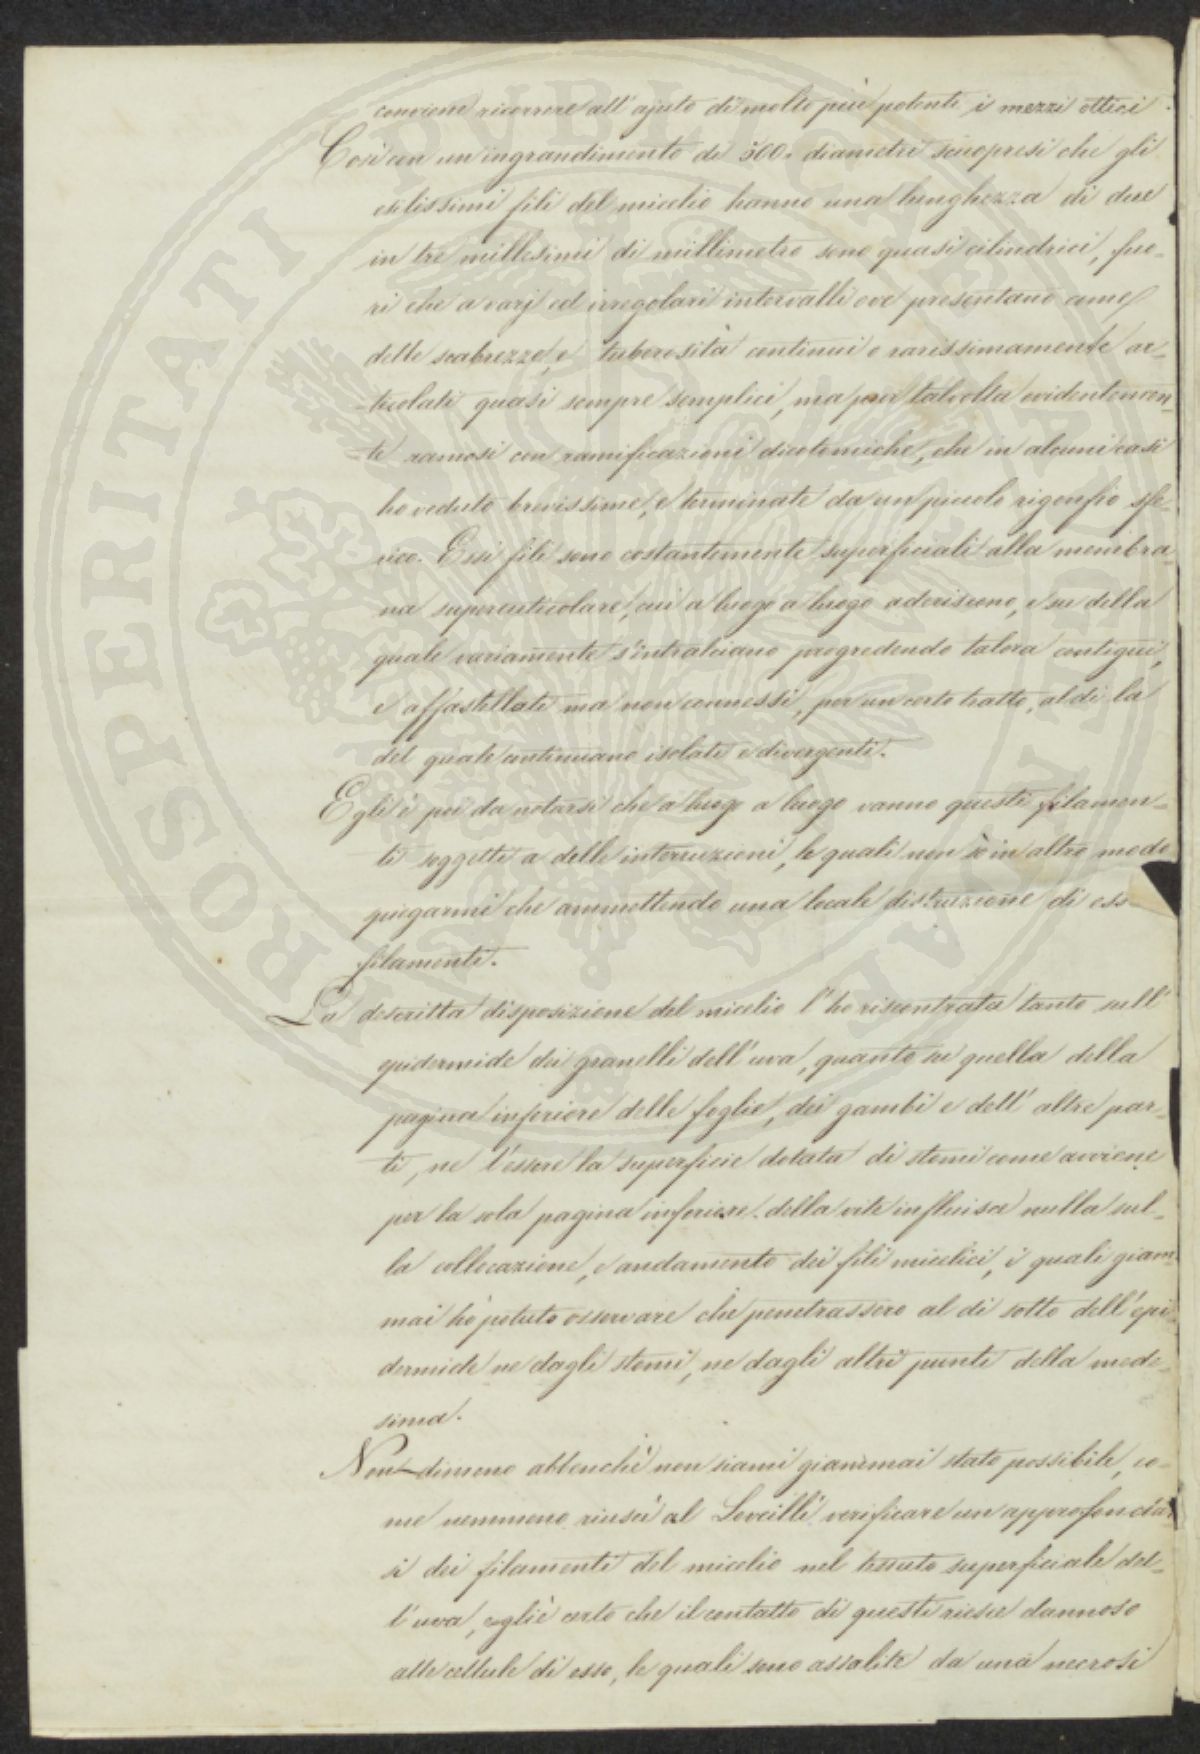 conviene ricorrere all' ajuto di molto più potenti i mezzi ottici.
Così con un ingrandimento di 300. diametri scuopresi che gli
esilissimi fili del micelio hanno una lunghezza di due
in tre millesimi di millimetro sono quasi cilindrici, fuo-
ri che a varj ed irregolari intervalli ove presentano come
delle scabrezze, e tuberosità continui e rarissimamente ar-
ticolati quasi sempre semplici, ma pur talvolta evidentemen-
te ramosi con ramificazioni dicotomiche, che in alcuni casi
ho veduto brevissime, e terminate da un piccolo rigonfio sfe-
rico. Essi fili sono costantemente superficiali alla membra-
na supercuticolare, cui a luogo a luogo aderiscono, e su della
quale variamente s'intralciano progredendo talora contigui,
e affastellati ma non connessi, per un certo tratto, al di là
del quale continuano isolati e divergenti.
Egli è poi da notarsi che a luogo a luogo vanno questi filamen-
ti soggetti a delle interruzioni, le quali non so in altro modo
spiegarmi che ammettendo una locale distruzione di essi
filamenti.
La descritta disposizione del micelio l' ho riscontrata tanto sull'
epidermide dei granelli dell' uva, quanto su quella della
pagina inferiore delle foglie, dei gambi e dell' altre par-
ti, ne l'essere la superficie dotata di stomi come avviene
per la sola pagina inferiore della vite influisce nulla sul-
la collocazione, e andamento dei fili micelici, i quali giam-
mai ho potuto osservare che penetrassero al di sotto dell' epi-
dermide ne dagli stomi, ne dagli altri punti della mede-
sima.
Non dimeno abbenchè non siami giammai stato possibile, co-
me nemmeno riuscì al Leveillè verificare un approfondar-
si dei filamenti del micelio nel tessuto superficiale del-
l' uva, egli è certo che il contatto di questi riesce dannoso
alle cellule di esso, le quali sono assalite da una necrosi
PUBLICAE
PROSPERITATI